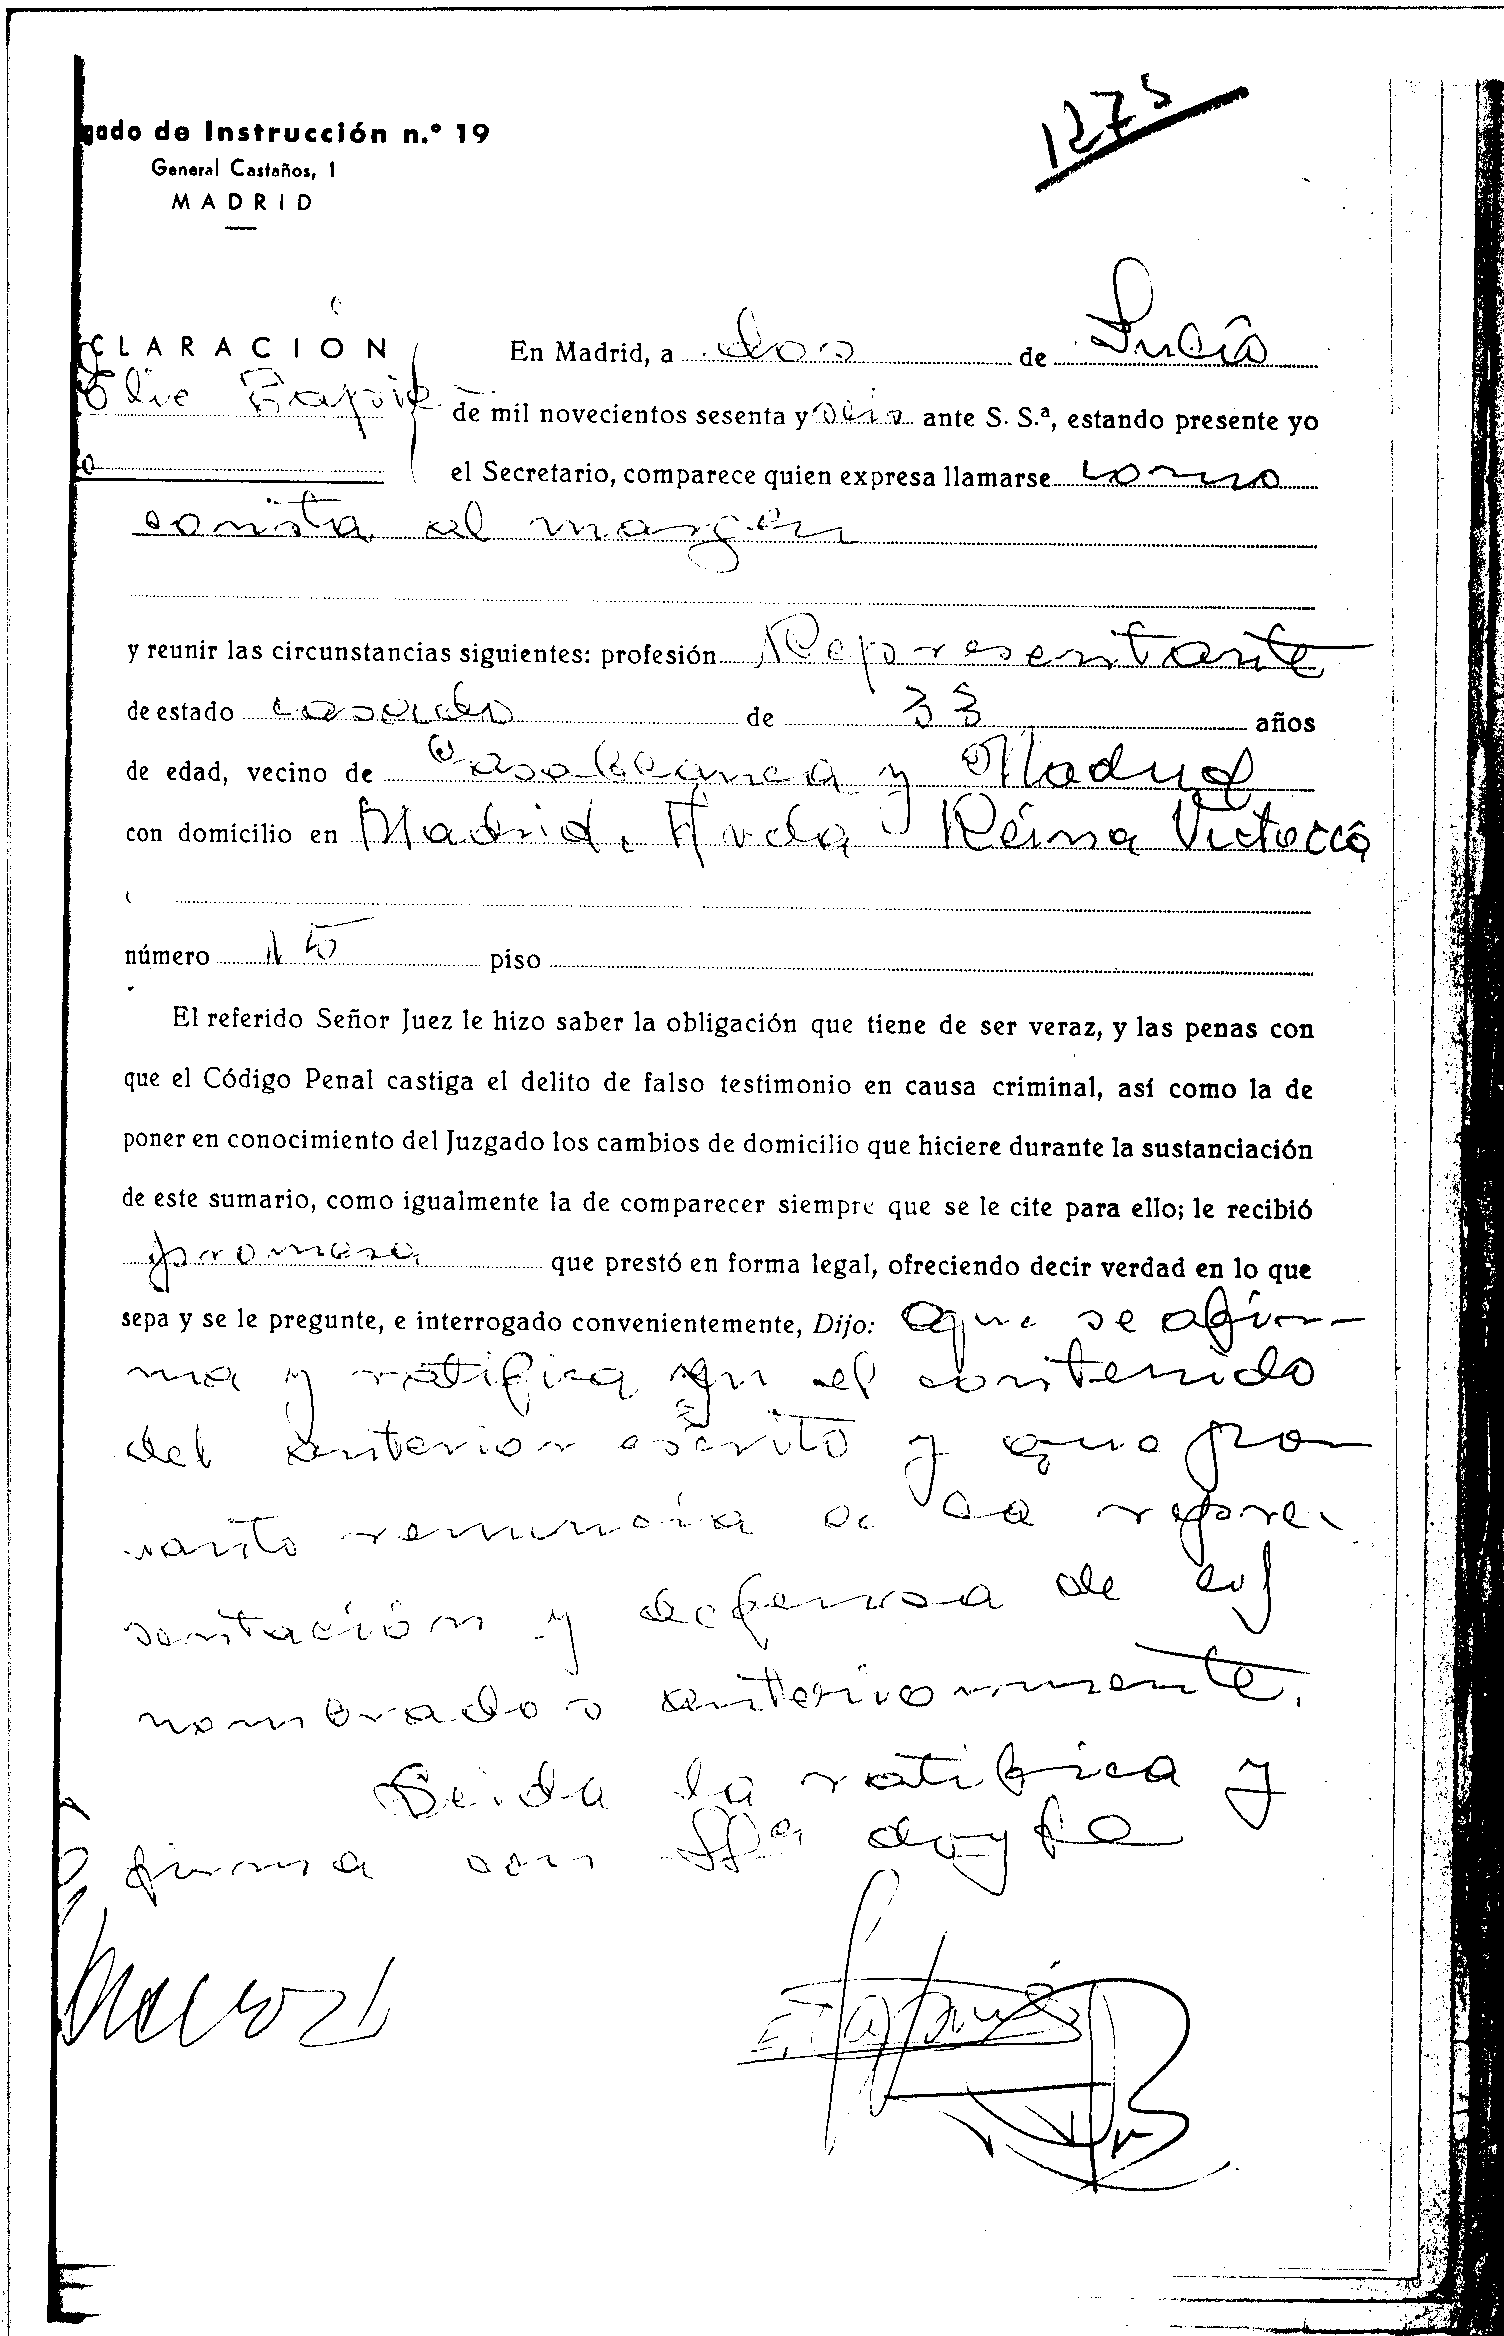 gado de Instrucción n.º 19
General Castaños, 1
MADRID
1275
CLARACION
Elie
En Madrid, a dos de Julio
de mil novecientos sesenta y seis ante S. S.ª, estando presente yo
el Secretario, comparece quien expresa llamarse como
consta al margen
y reunir las circunstancias siguientes: profesión Representante
de estado casado de 33 años
de edad, vecino de Casablanca y Madrid
con domicilio en Madrid, Avda Reina Victoria
número 15 piso
El referido Señor Juez le hizo saber la obligación que tiene de ser veraz, y las penas con
que el Código Penal castiga el delito de falso testimonio en causa criminal, así como la de
poner en conocimiento del Juzgado los cambios de domicilio que hiciere durante la sustanciación
de este sumario, como igualmente la de comparecer siempre que se le cite para ello; le recibió
promesa que prestó en forma legal, ofreciendo decir verdad en lo que
sepa y se le pregunte, e interrogado convenientemente, Dijo: que se afir-
ma y ratifica en el contenido
del anterior escrito y que por
tanto renuncia a la repre-
sentación y defensa de los
nombrados anteriormente.
Leida la ratifica y
firma con SSª doy fe